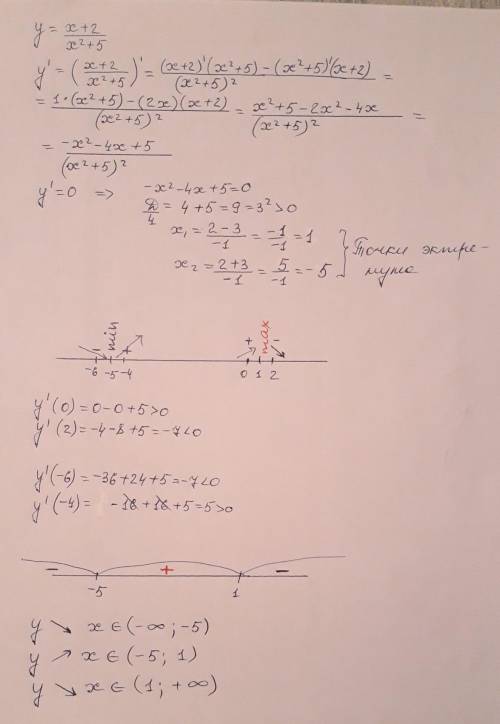 y = x+2 / x²+5
y' = (x+2 / x²+5)' = (x+2)'(x²+5) - (x²+5)'(x+2) / (x²+5)² =
= 1·(x²+5) - (2x)(x+2) / (x²+5)² = x²+5-2x²-4x / (x²+5)² =
= -x²-4x+5 / (x²+5)²
y'=0 => -x²-4x+5=0
D/4 = 4+5=9=3²>0
x₁ = 2-3 / -1 = -1 / -1 = 1
x₂ = 2+3 / -1 = 5 / -1 = -5
} Точки экстре-
мума
- min + + max -
-6 -5 -4 0 1 2
y'(0)=0-0+5>0
y'(2)=-4-8+5=-7<0
y'(-6)=-36+24+5=-7<0
y'(-4)= -16+16+5=5>0
- + -
-5 1
y ↘ x∈(-∞;-5)
y ↗ x∈(-5; 1)
y ↘ x∈(1;+∞)